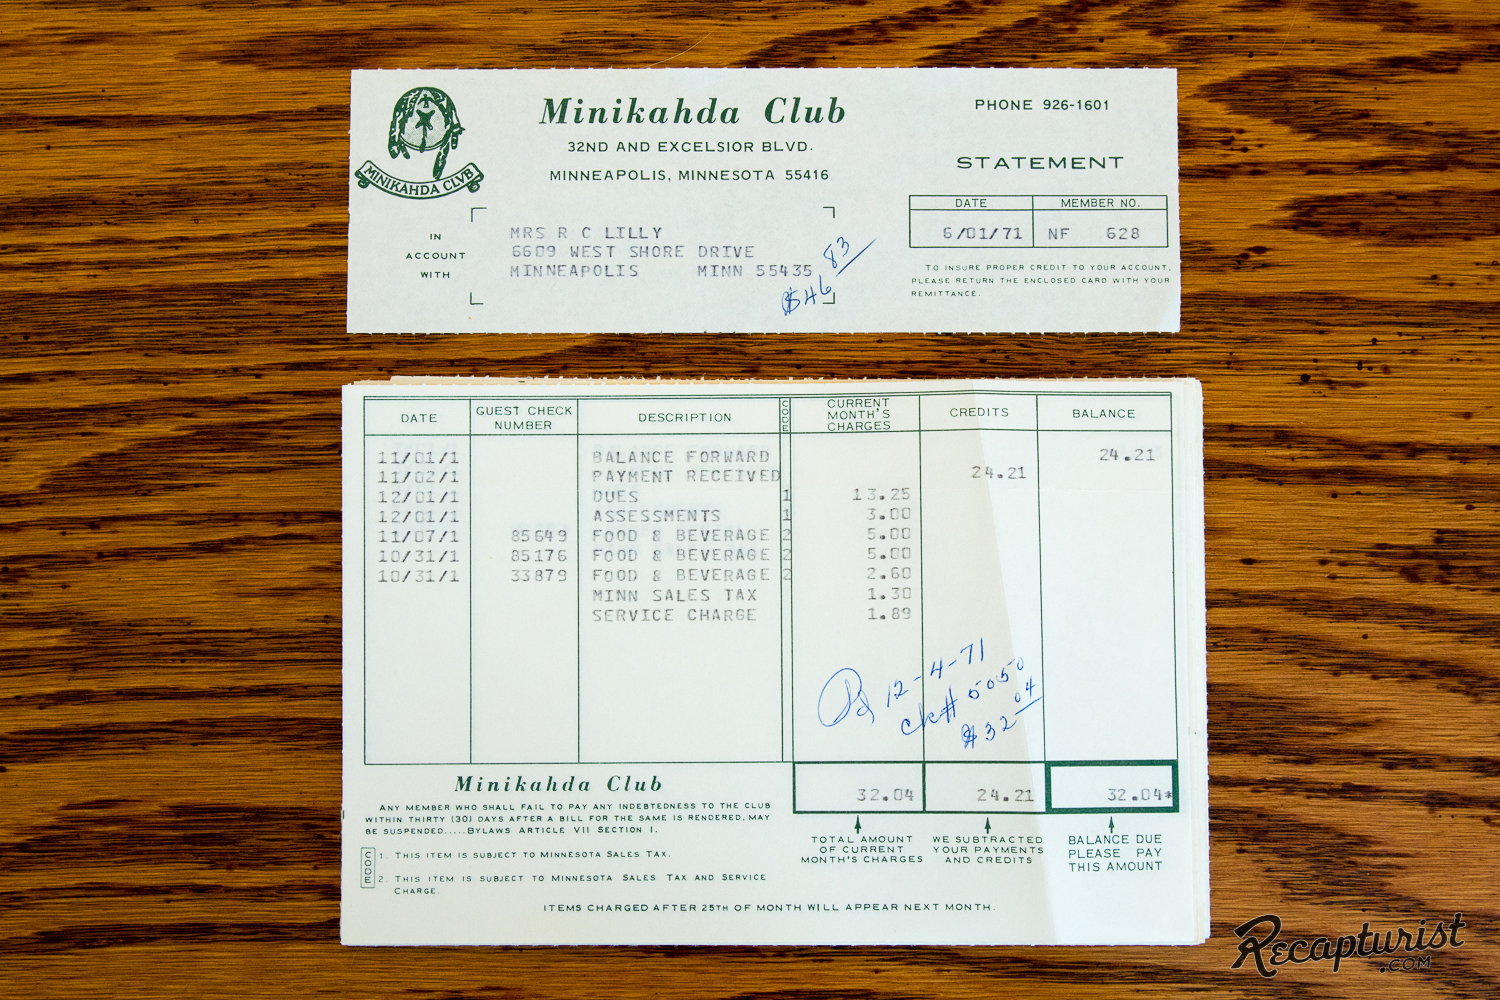 Minikahda Club
32ND AND EXCELSIOR BLVD.
MINNEAPOLIS, MINNESOTA 55416
MINIKAHDA CLVB
PHONE 926-1601
STATEMENT
DATE MEMBER NO.
6/01/71 NF 628
TO INSURE PROPER CREDIT TO YOUR ACCOUNT,
PLEASE RETURN THE ENCLOSED CARD WITH YOUR
REMITTANCE.
IN
ACCOUNT
WITH
MRS R C LILLY
6609 WEST SHORE DRIVE
MINNEAPOLIS MINN 55435
$546 83
DATE GUEST CHECK NUMBER DESCRIPTION CODE CURRENT MONTH'S CHARGES CREDITS BALANCE
11/01/1 BALANCE FORWARD 24.21
11/02/1 PAYMENT RECEIVED 24.21
12/01/1 DUES 1 13.25
12/01/1 ASSESSMENTS 1 3.00
11/07/1 85649 FOOD & BEVERAGE 2 5.00
10/31/1 85176 FOOD & BEVERAGE 2 5.00
10/31/1 33879 FOOD & BEVERAGE 2 2.60
MINN SALES TAX 1.30
SERVICE CHARGE 1.89
Pd 12-4-71
ck# 5050
$32 04
32.04 24.21 32.04*
Minikahda Club
ANY MEMBER WHO SHALL FAIL TO PAY ANY INDEBTEDNESS TO THE CLUB
WITHIN THIRTY (30) DAYS AFTER A BILL FOR THE SAME IS RENDERED, MAY
BE SUSPENDED.....BYLAWS ARTICLE VII SECTION I.
CODE
1. THIS ITEM IS SUBJECT TO MINNESOTA SALES TAX.
2. THIS ITEM IS SUBJECT TO MINNESOTA SALES TAX AND SERVICE
CHARGE.
TOTAL AMOUNT
OF CURRENT
MONTH'S CHARGES
WE SUBTRACTED
YOUR PAYMENTS
AND CREDITS
BALANCE DUE
PLEASE PAY
THIS AMOUNT
ITEMS CHARGED AFTER 25TH OF MONTH WILL APPEAR NEXT MONTH.
Recapturist
.COM